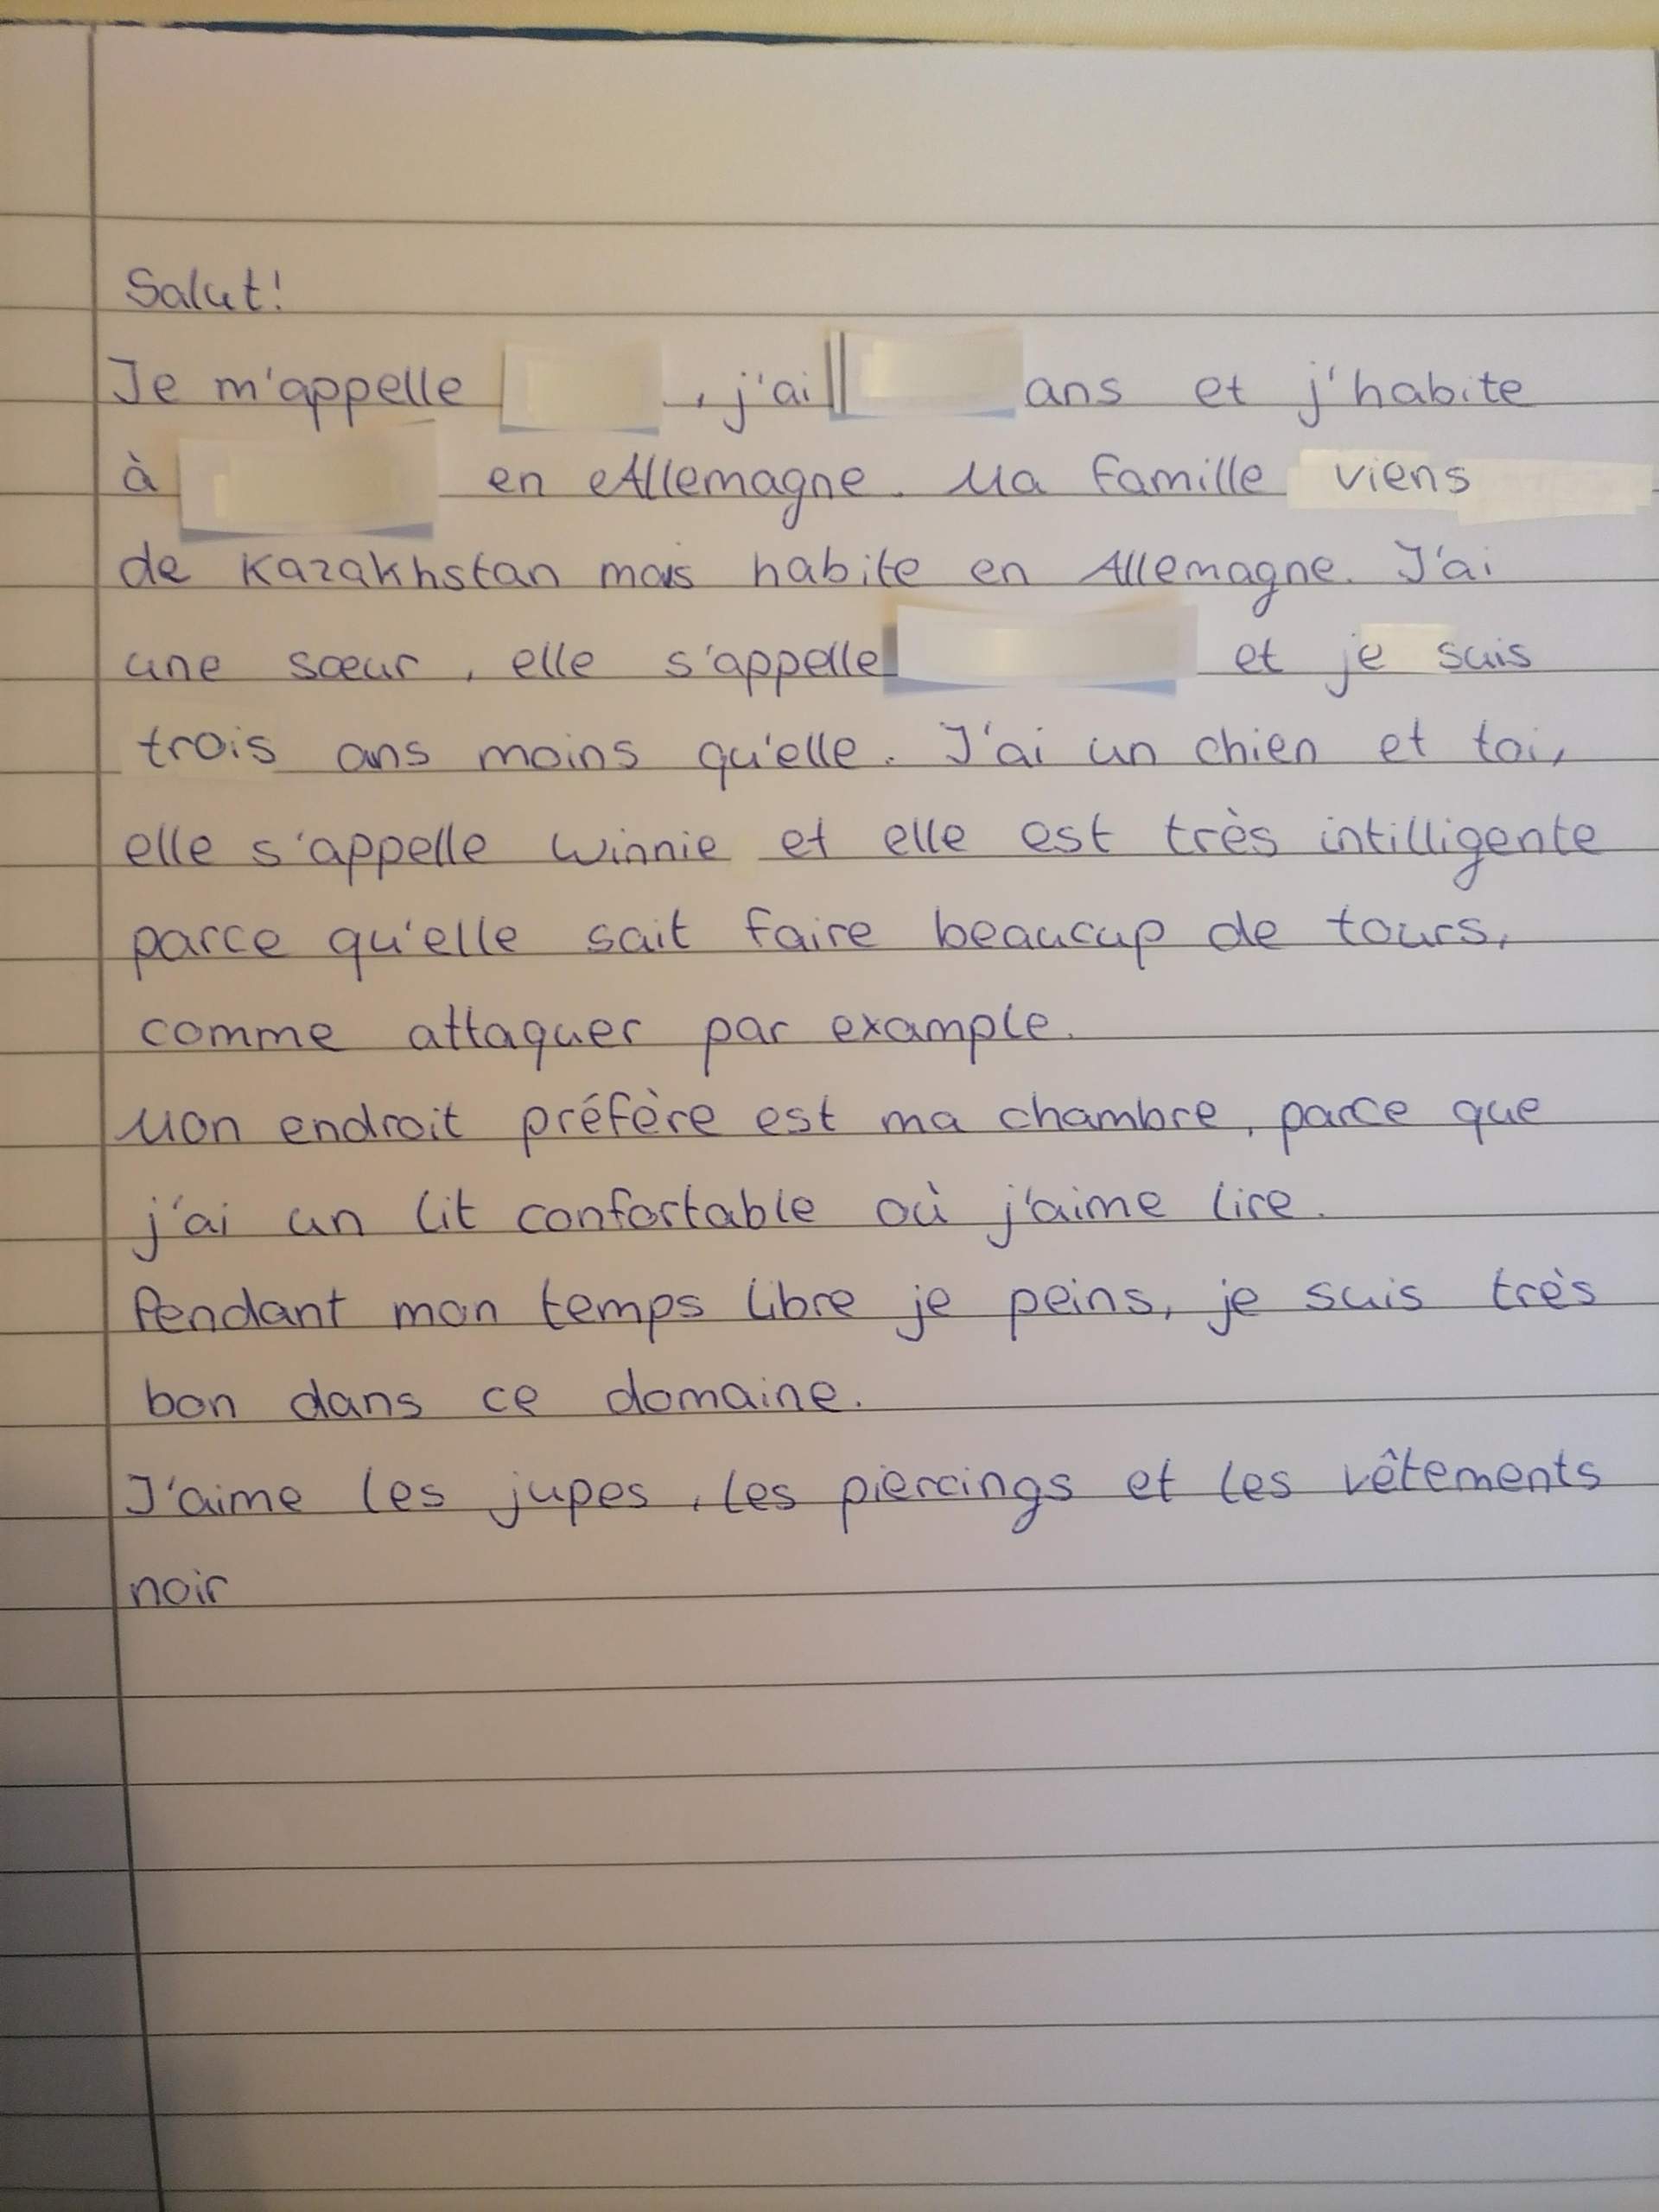 Salut!
Je m'appelle , j'ai ans et j'habite
à en Allemagne. Ma famille viens
de Kazakhstan mais habite en Allemagne. J'ai
une sœur, elle s'appelle et je suis
trois ans moins qu'elle. J'ai un chien et toi,
elle s'appelle Winnie et elle est très intilligente
parce qu'elle sait faire beaucup de tours,
comme attaquer par example.
Mon endroit préfère est ma chambre, parce que
j'ai un lit confortable où j'aime lire.
Pendant mon temps libre je peins, je suis très
bon dans ce domaine.
J'aime les jupes, les piercings et les vêtements
noir